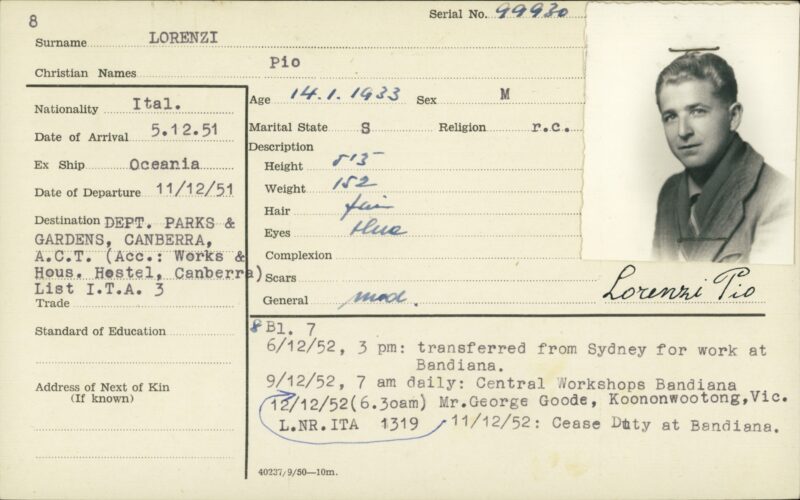 8
Serial No. 99930
Surname LORENZI
Christian Names Pio
Nationality Ital.
Date of Arrival 5.12.51
Ex Ship Oceania
Date of Departure 11/12/51
Destination DEPT. PARKS &
GARDENS, CANBERRA,
A.C.T. (Acc.: Works &
Hous. Hostel, Canberra)
List I.T.A. 3
Trade
Standard of Education
Address of Next of Kin
(If known)
Age 14.1.1933 Sex M
Marital State S Religion r.c.
Description
Height 5'5
Weight 152
Hair fair
Eyes blue
Complexion
Scars
General med.
Lorenzi Pio
8 Bl. 7
6/12/52, 3 pm: transferred from Sydney for work at
Bandiana.
9/12/52, 7 am daily: Central Workshops Bandiana
12/12/52(6.30am) Mr.George Goode, Koononwootong,Vic.
L.NR.ITA 1319 11/12/52: Cease Duty at Bandiana.
40237/9/50—10m.